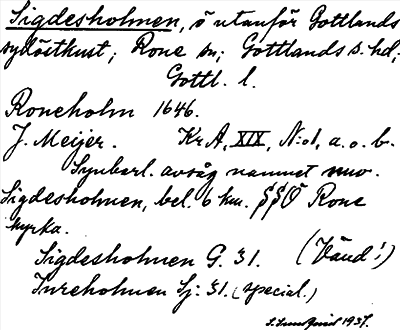 Sigdesholmen, ö utanför Gottlands
sydöstkust; Rone sn; Gottlands s. hd;
Gottl. l.
Roneholm 1646.
J. Meijer. KrA, XIX, N:o1, a. o. b.
Synbarl. avsåg namnet nuv.
Sigdesholmen, bel. 6 km. SSÖ Rone
kyrka.
Sigdesholmen G. 31. (Vänd!)
Inreholmen Sj: 31. (special.)
1937.